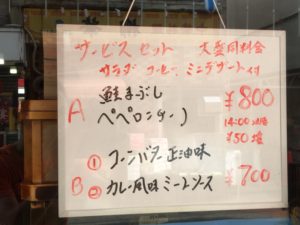 サービスセット 大盛同料金
サラダ コーヒー、ミニデザート付
A 鮭まぶし ¥800
ペペロンチーノ 14:00以降
¥50増
① コーンバター正油味
B ② カレー風味ミートソース ¥700